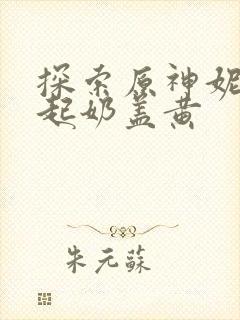 探索原神妮
起奶盖黄
朱元蘇